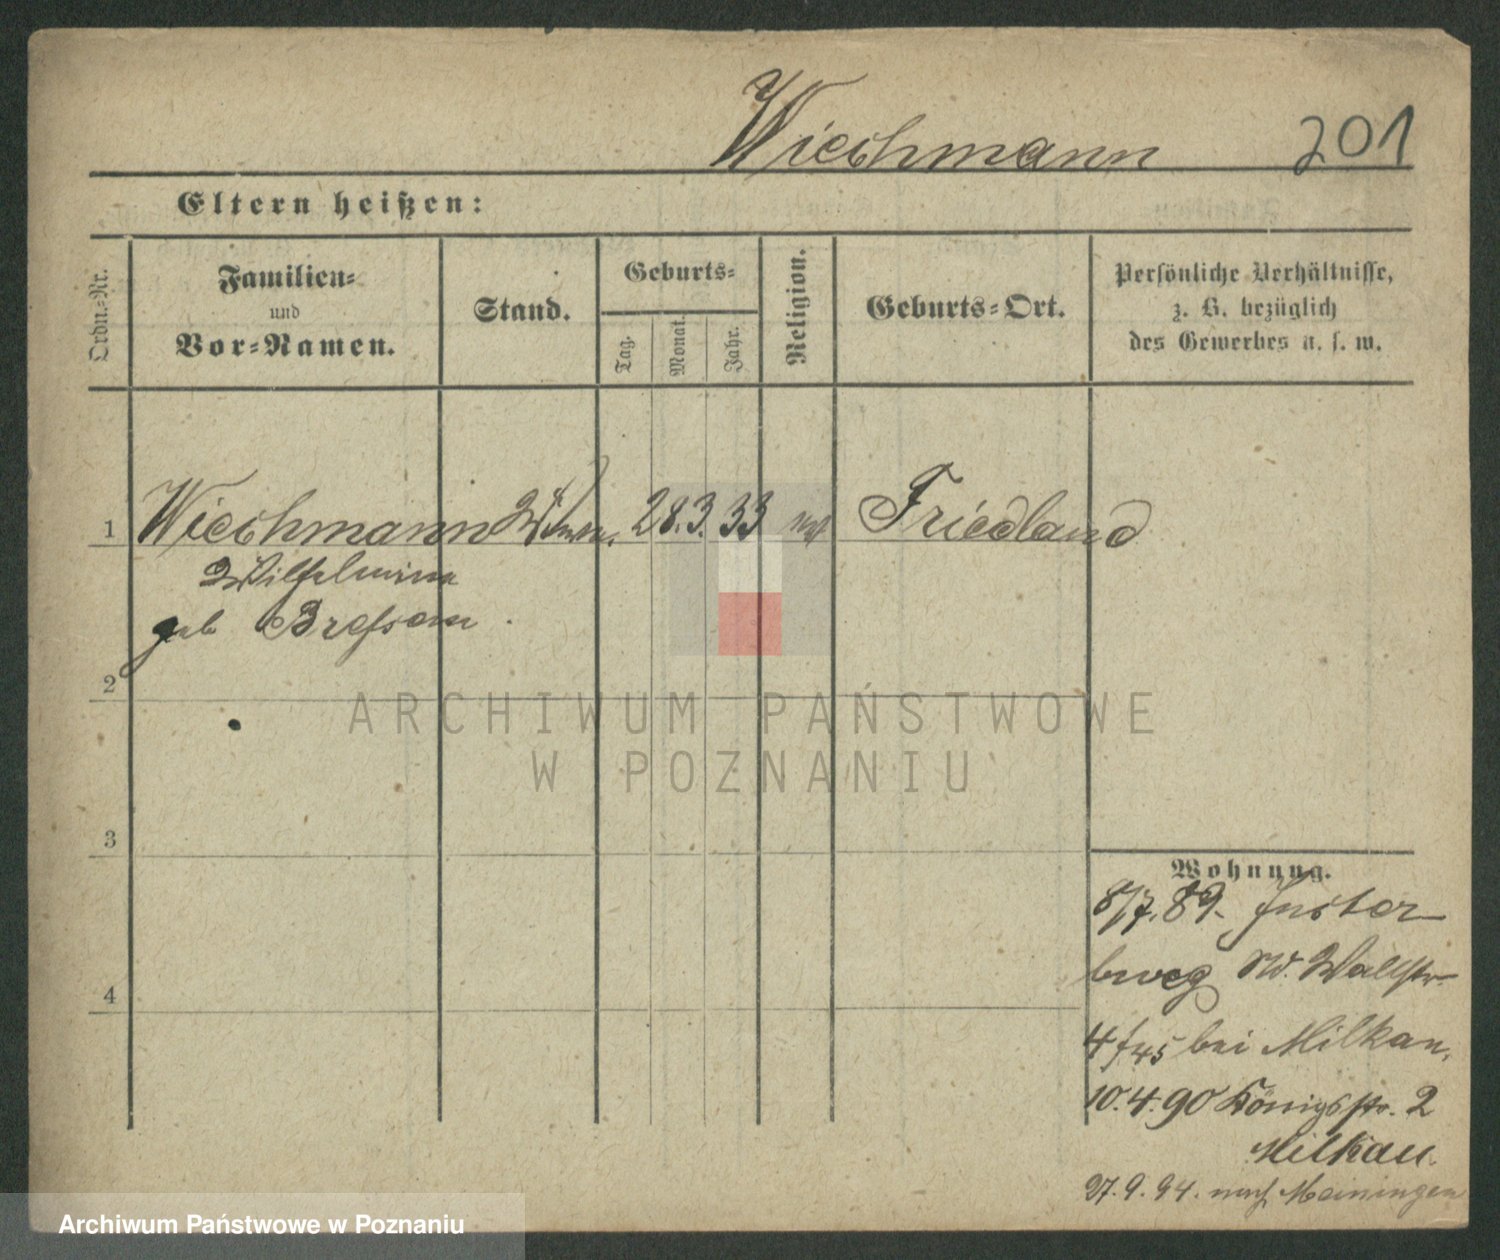 Wiechmann 201
Eltern heißen:
Ordn.-Nr.
Familien-
und
Vor-Namen.
Stand.
Geburts-
Tag.
Monat.
Jahr.
Religion.
Geburts-Ort.
Persönliche Verhältnisse,
z. B. bezüglich
des Gewerbes u. s. w.
1 Wiechmann 28. 3. 33 Friedland
Wilhelmine
geb
2
3
4
Wohnung.
8/7. 89. Inster
burg W. Wallstr
4 bei Milkau,
10. 4. 90 Königsstr. 2
Milkau.
27. 9. 94. nach Meiningen
ARCHIWUM PAŃSTWOWE
W POZNANIU
Archiwum Państwowe w Poznaniu